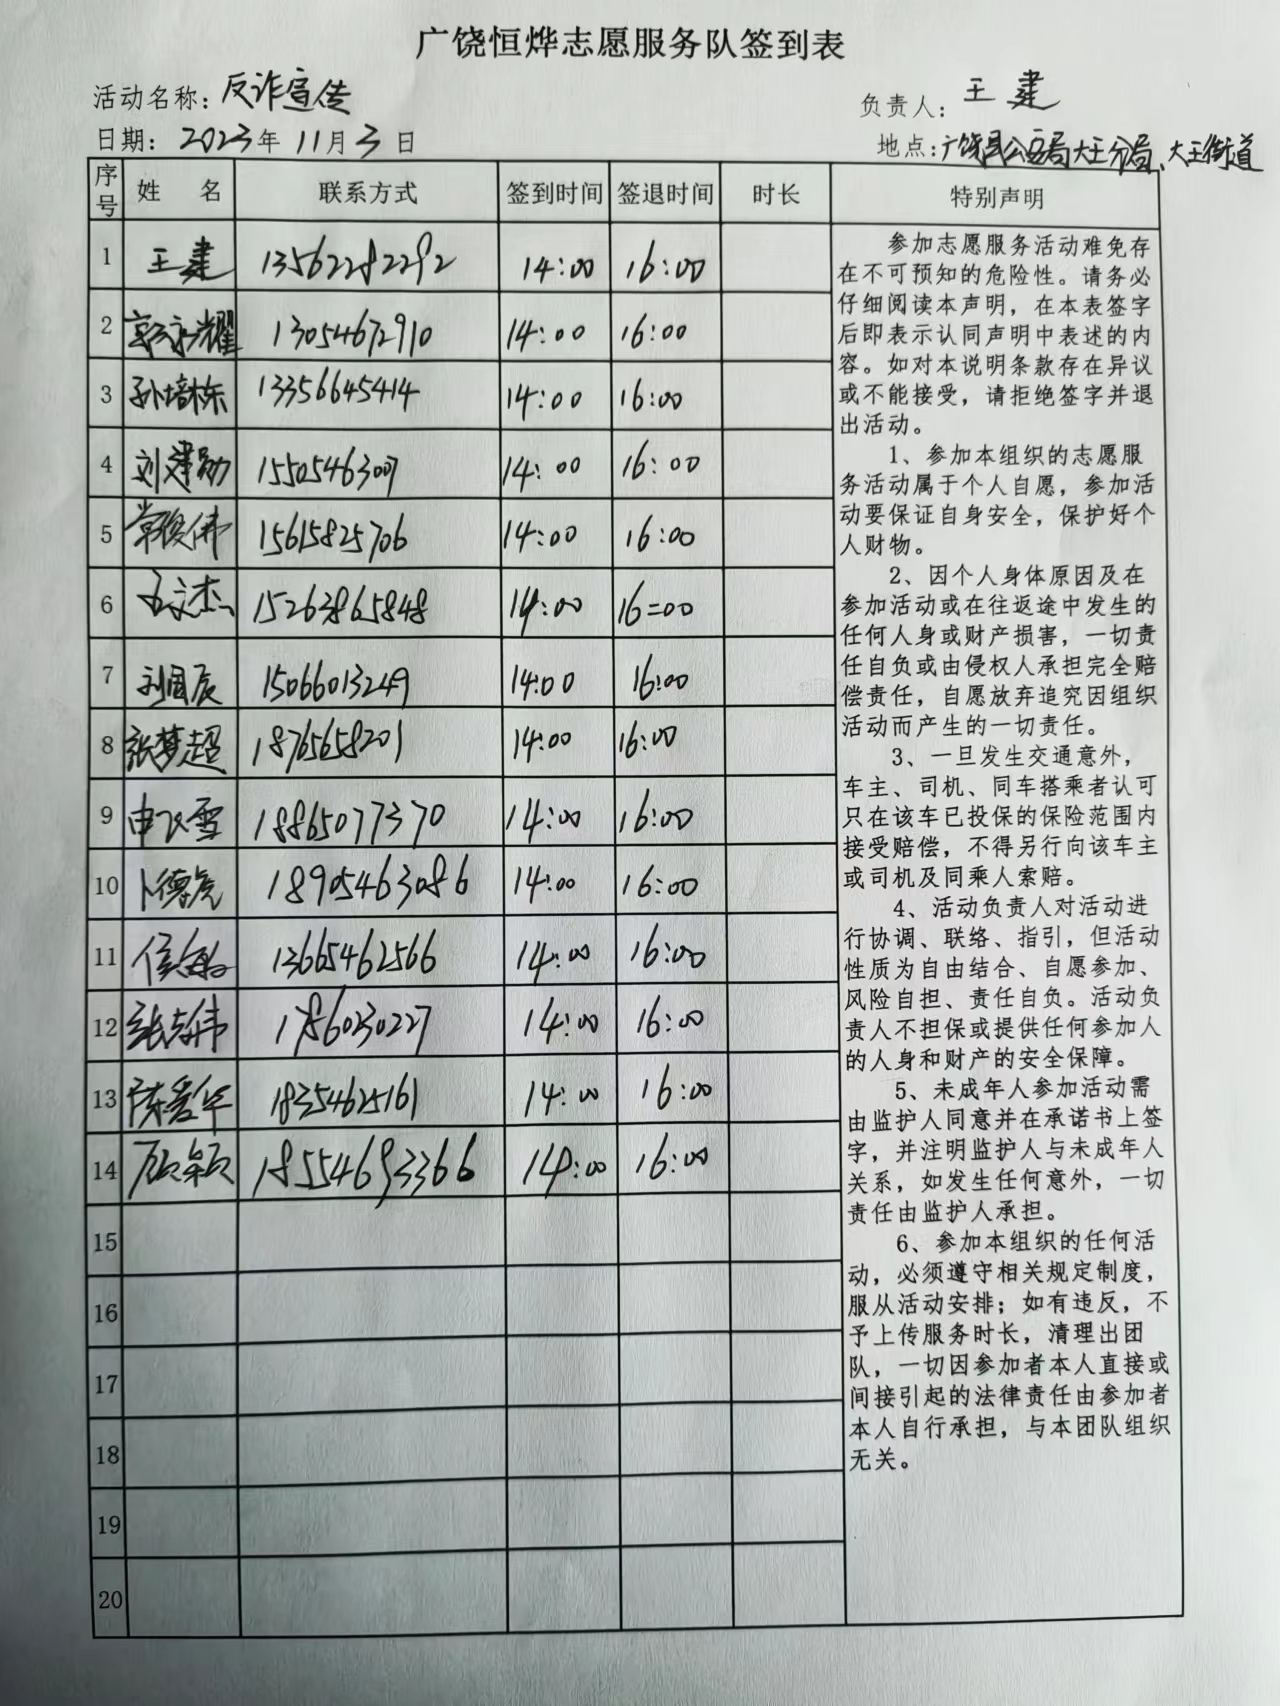 广饶恒烨志愿服务队签到表
活动名称：反诈宣传 负责人：王建
日期：2023年11月3日 地点：广饶县公安局大王分局、大王街道
序号 姓名 联系方式 签到时间 签退时间 时长 特别声明
1 王建 13562282292 14:00 16:00
2 郭永耀 13054672910 14:00 16:00
3 孙培栋 13356645414 14:00 16:00
4 刘建勋 15505463007 14:00 16:00
5 常俊伟 15615825706 14:00 16:00
6 文杰 15263865848 14:00 16=00
7 刘国辰 15066013249 14:00 16:00
8 张梦超 18765658201 14:00 16:00
9 申飞雪 18865077370 14:00 16:00
10 卜德虎 18905463086 14:00 16:00
11 侯敏 13665462566 14:00 16:00
12 张志伟 1786030227 14:00 16:00
13 陈爱军 18354625161 14:00 16:00
14 顾颖 18554693366 14:00 16:00
15
16
17
18
19
20
参加志愿服务活动难免存
在不可预知的危险性。请务必
仔细阅读本声明，在本表签字
后即表示认同声明中表述的内
容。如对本说明条款存在异议
或不能接受，请拒绝签字并退
出活动。
1、参加本组织的志愿服
务活动属于个人自愿，参加活
动要保证自身安全，保护好个
人财物。
2、因个人身体原因及在
参加活动或在往返途中发生的
任何人身或财产损害，一切责
任自负或由侵权人承担完全赔
偿责任，自愿放弃追究因组织
活动而产生的一切责任。
3、一旦发生交通意外，
车主、司机、同车搭乘者认可
只在该车已投保的保险范围内
接受赔偿，不得另行向该车主
或司机及同乘人索赔。
4、活动负责人对活动进
行协调、联络、指引，但活动
性质为自由结合、自愿参加、
风险自担、责任自负。活动负
责人不担保或提供任何参加人
的人身和财产的安全保障。
5、未成年人参加活动需
由监护人同意并在承诺书上签
字，并注明监护人与未成年人
关系，如发生任何意外，一切
责任由监护人承担。
6、参加本组织的任何活
动，必须遵守相关规定制度，
服从活动安排；如有违反，不
予上传服务时长，清理出团
队，一切因参加者本人直接或
间接引起的法律责任由参加者
本人自行承担，与本团队组织
无关。